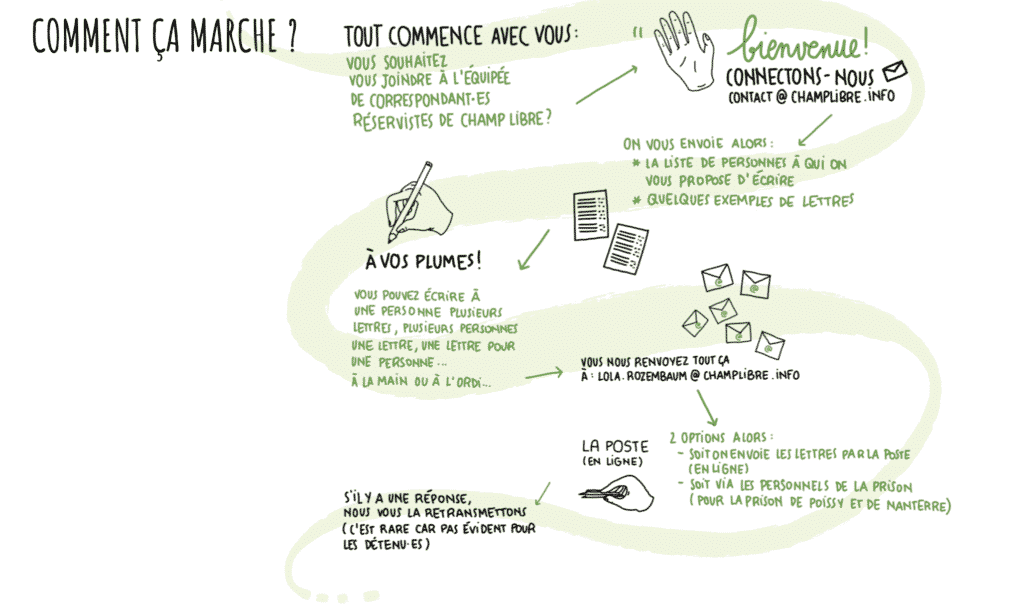 COMMENT ÇA MARCHE ?
TOUT COMMENCE AVEC VOUS :
VOUS SOUHAITEZ
VOUS JOINDRE À L'ÉQUIPÉE
DE CORRESPONDANT·ES
RÉSERVISTES DE CHAMP LIBRE ?
bienvenue !
CONNECTONS-NOUS
CONTACT @ CHAMPLIBRE.INFO
ON VOUS ENVOIE ALORS :
* LA LISTE DE PERSONNES À QUI ON
VOUS PROPOSE D'ÉCRIRE
* QUELQUES EXEMPLES DE LETTRES
À VOS PLUMES !
VOUS POUVEZ ÉCRIRE À
UNE PERSONNE PLUSIEURS
LETTRES, PLUSIEURS PERSONNES
UNE LETTRE, UNE LETTRE POUR
UNE PERSONNE...
À LA MAIN OU À L'ORDI...
@
@
@
@
@
@
VOUS NOUS RENVOYEZ TOUT ÇA
À : LOLA.ROZEMBAUM @ CHAMPLIBRE.INFO
2 OPTIONS ALORS :
- SOIT ON ENVOIE LES LETTRES PAR LA POSTE
(EN LIGNE)
- SOIT VIA LES PERSONNELS DE LA PRISON
(POUR LA PRISON DE POISSY ET DE NANTERRE)
LA POSTE
(EN LIGNE)
S'IL Y A UNE RÉPONSE,
NOUS VOUS LA RETRANSMETTONS
(C'EST RARE CAR PAS ÉVIDENT POUR
LES DÉTENU·ES)